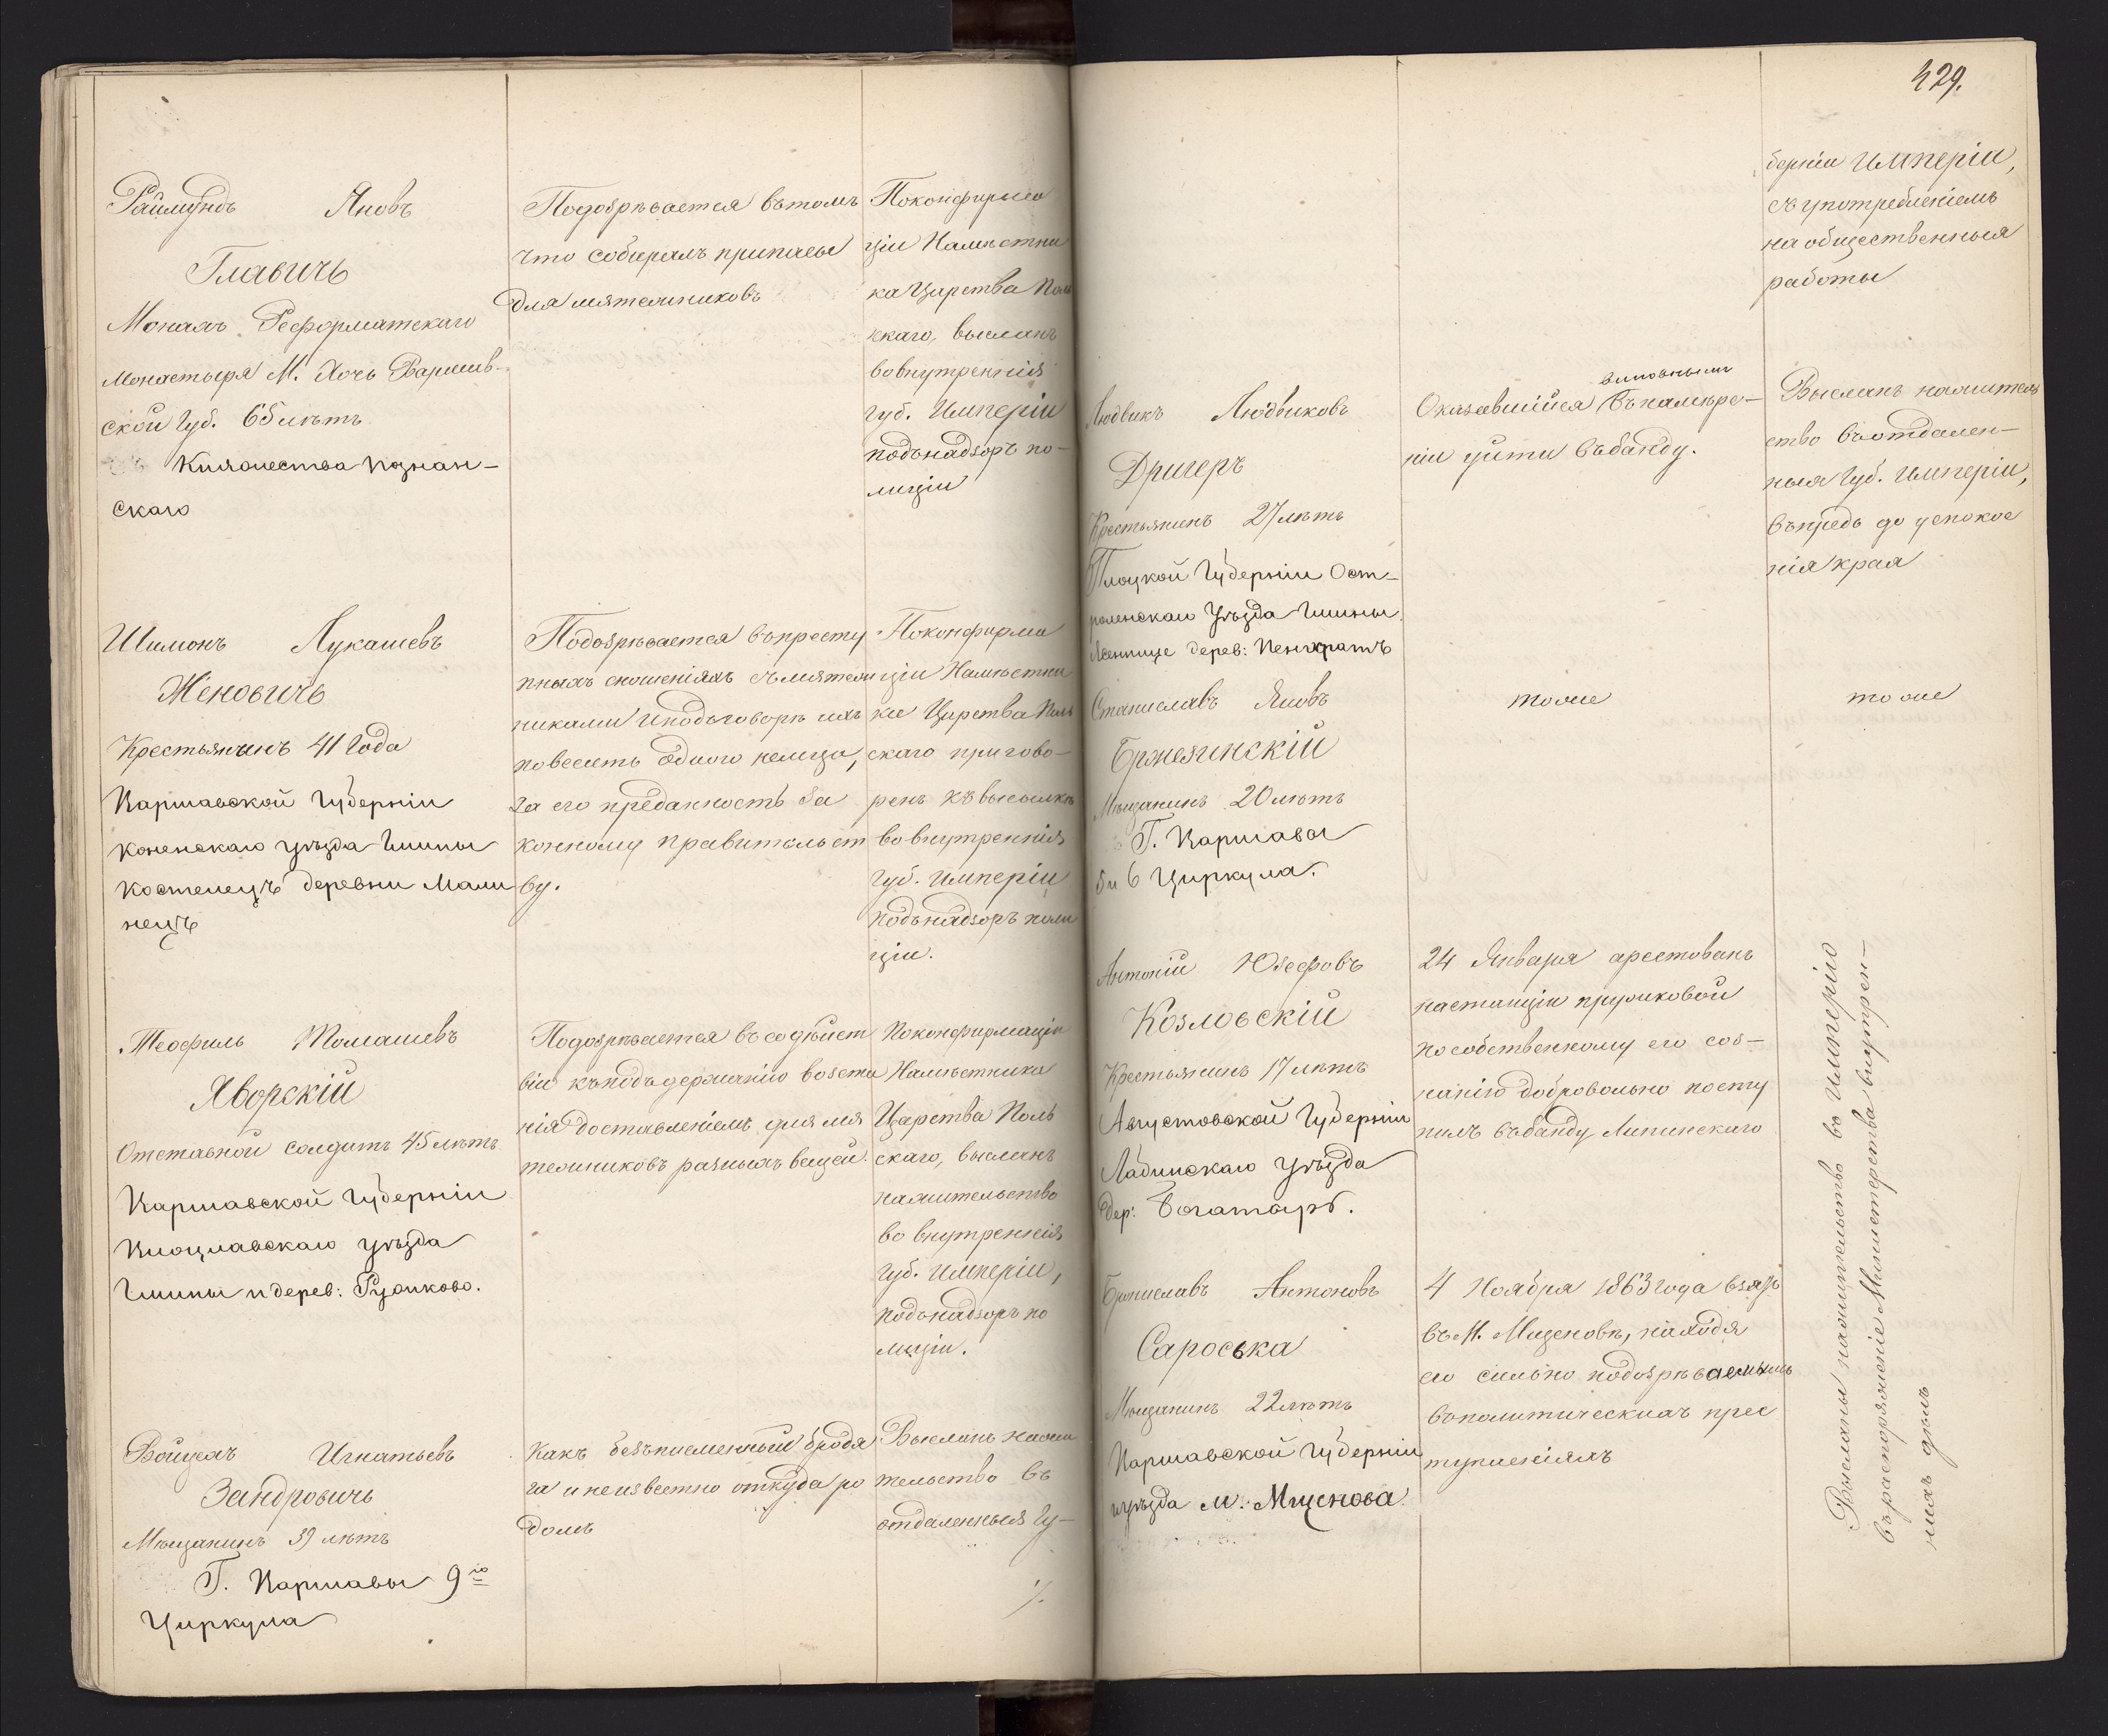 429.
Раймундъ Яновъ
Главичь
Монахъ Реформатскаго
монастыря М. Хочь Варшав-
ской Губ. 65 лѣтъ
Княжества Познан-
скаго
Подозрѣвается въ томъ
что собиралъ припасы
для мятежниковъ
По конфирма
ціи Намѣстни
ка Царства Поль
скаго, высланъ
во внутреннія
губ. Имперіи
подъ надзоръ по-
лиціи
Шимонъ Лукашевъ
Женовичь
Крестьянинъ 41 года
Варшавской Губерніи
Коненскаго уѣзда Гмины
Костенецъ деревни Мали
нецъ
Подозрѣвается въ престу
пныхъ сношеніяхъ съ мятеж
никами и подъговорѣ ихъ
повесить одного немца,
за его преданность за
конному правительст
ву.
По конфирма
ціи Намѣстни
ка Царства Поль
скаго пригово-
ренъ къ высылкѣ
во внутреннія
Губ. Имперіи
подъ надзоръ поли
ціи.
Теофиль Томашевъ
Яворскій
Отставной солдатъ 45 лѣтъ
Варшавской Губерніи
Влоцлавскаго уѣзда
Гмины и дерев:
Подозрѣвается въ содѣйст
віи къ подъдержанію возста
нія доставленіемъ для мя
тежниковъ разныхъ вещей.
По конфирмаціи
Намѣстника
Царства Поль
скаго, высланъ
на жительство
во внутреннія
Губ. Имперіи,
подъ надзоръ по
лиціи.
Войцехъ Игнатьевъ
Зандровичь
Мѣщанинъ 39 лѣтъ
Г. Варшавы 9го
Циркула
Какъ безъписменный бродя
га и неизвестно откуда ро
домъ
Высланъ на жи
тельство въ
отдаленныя Гу-
./.
берніи Имперіи,
съ употребленіемъ
на общественныя
работы
Людвикъ Людвиковъ
Дригеръ
Крестьянинъ 27 лѣтъ
Плоцкой Губерніи Ост-
роленскаго Уѣзда Гмины
Ясеннице дерев:
виновнымъ
Оказавшійся въ намѣре-
ніи уйти въ банду.
Высланъ на житель
ство въ отдален-
ныя Губ. Имперіи,
въпредь до успокое
нія края
Станиславъ Яновъ
Бржезинскій
Мѣщанинъ 20 лѣтъ
Г. Варшавы
5 и 6 Циркула.
тоже
тоже
Антоній Юзефовъ
Козловскій
Крестьянинъ 17 лѣтъ
Августовской Губерніи
Уѣзда
дер: Богатыръ.
24 Января арестованъ
на станціи
по собственному его соз-
нанію добровольно посту
пилъ въ банду Липинскаго
Брониславъ Антоновъ
Сароська
Мѣщанинъ 22 лѣтъ
Варшавской Губерніи
и уѣзда м. Мщенова
4 Ноября 1863 года взятъ
въ М. Мщеновѣ, находя
его сильно подозрѣваемымъ
въ политическихъ прес
тупленіяхъ
Высланы на жительство во Имперію
въ распоряженіе Министерства внутрен-
нихъ дѣлъ